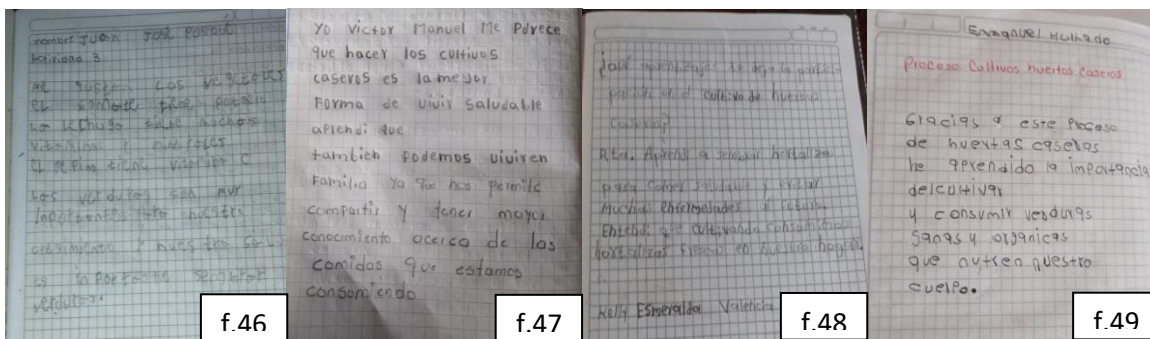 nombre JUAN JOSE
Actividad 3
me gustan Los vegetales
el tomate tiene potasio
La Lechuga tiene muchas
vitaminas y minerales
el pepino tiene vitamina C
Las verduras son muy
importantes para nuestro
y nuestra
es importante sembrar
verduras.
f.46
Yo Victor Manuel Me Parece
que hacer los cultivos
caseros es la mejor
Forma de vivir saludable
aprendi que
tambien podemos vivir en
Familia Ya que nos permite
compartir y tener mayor
conocimiento acerca de las
comidas que estamos
consumiendo
f.47
¿Qué aprendizajes te deja la partici-
pación en el cultivo de huerta
casera?
Rta. Aprendi a sembrar hortaliza
para comer saludable y evitar
Muchas enfermedades a futuro.
Entendi que cultivando consumimos
hortalizas frescas en nuestro hogar.
Kelly Esmeralda Valencia
f.48
Emmanuel Hurtado
Proceso Cultivos huertos Caseros
Gracias a este Proceso
de huertas caseras
he aprendido la importancia
del cultivar
y consumir verduras
Sanas y organicas
que nutren nuestro
cuerpo.
f.49